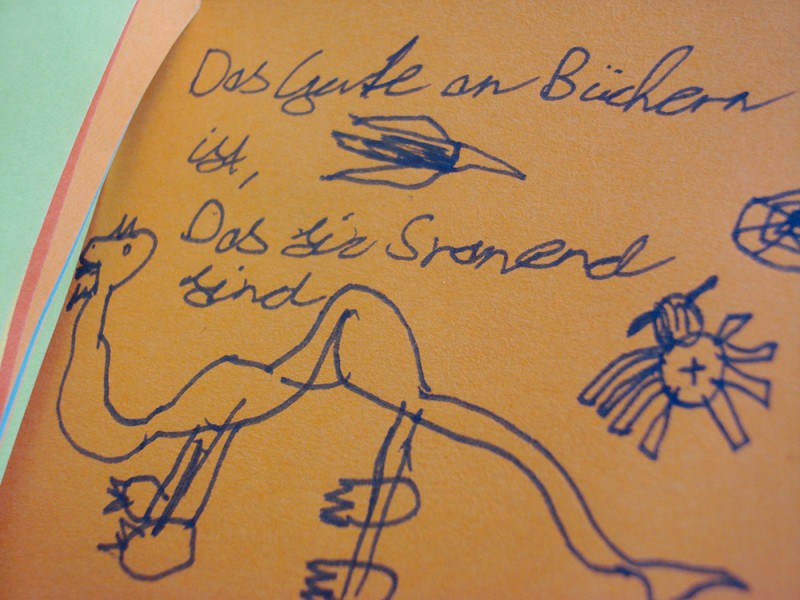 Das Gute an Büchern
ist,
Das sie Sranend
sind